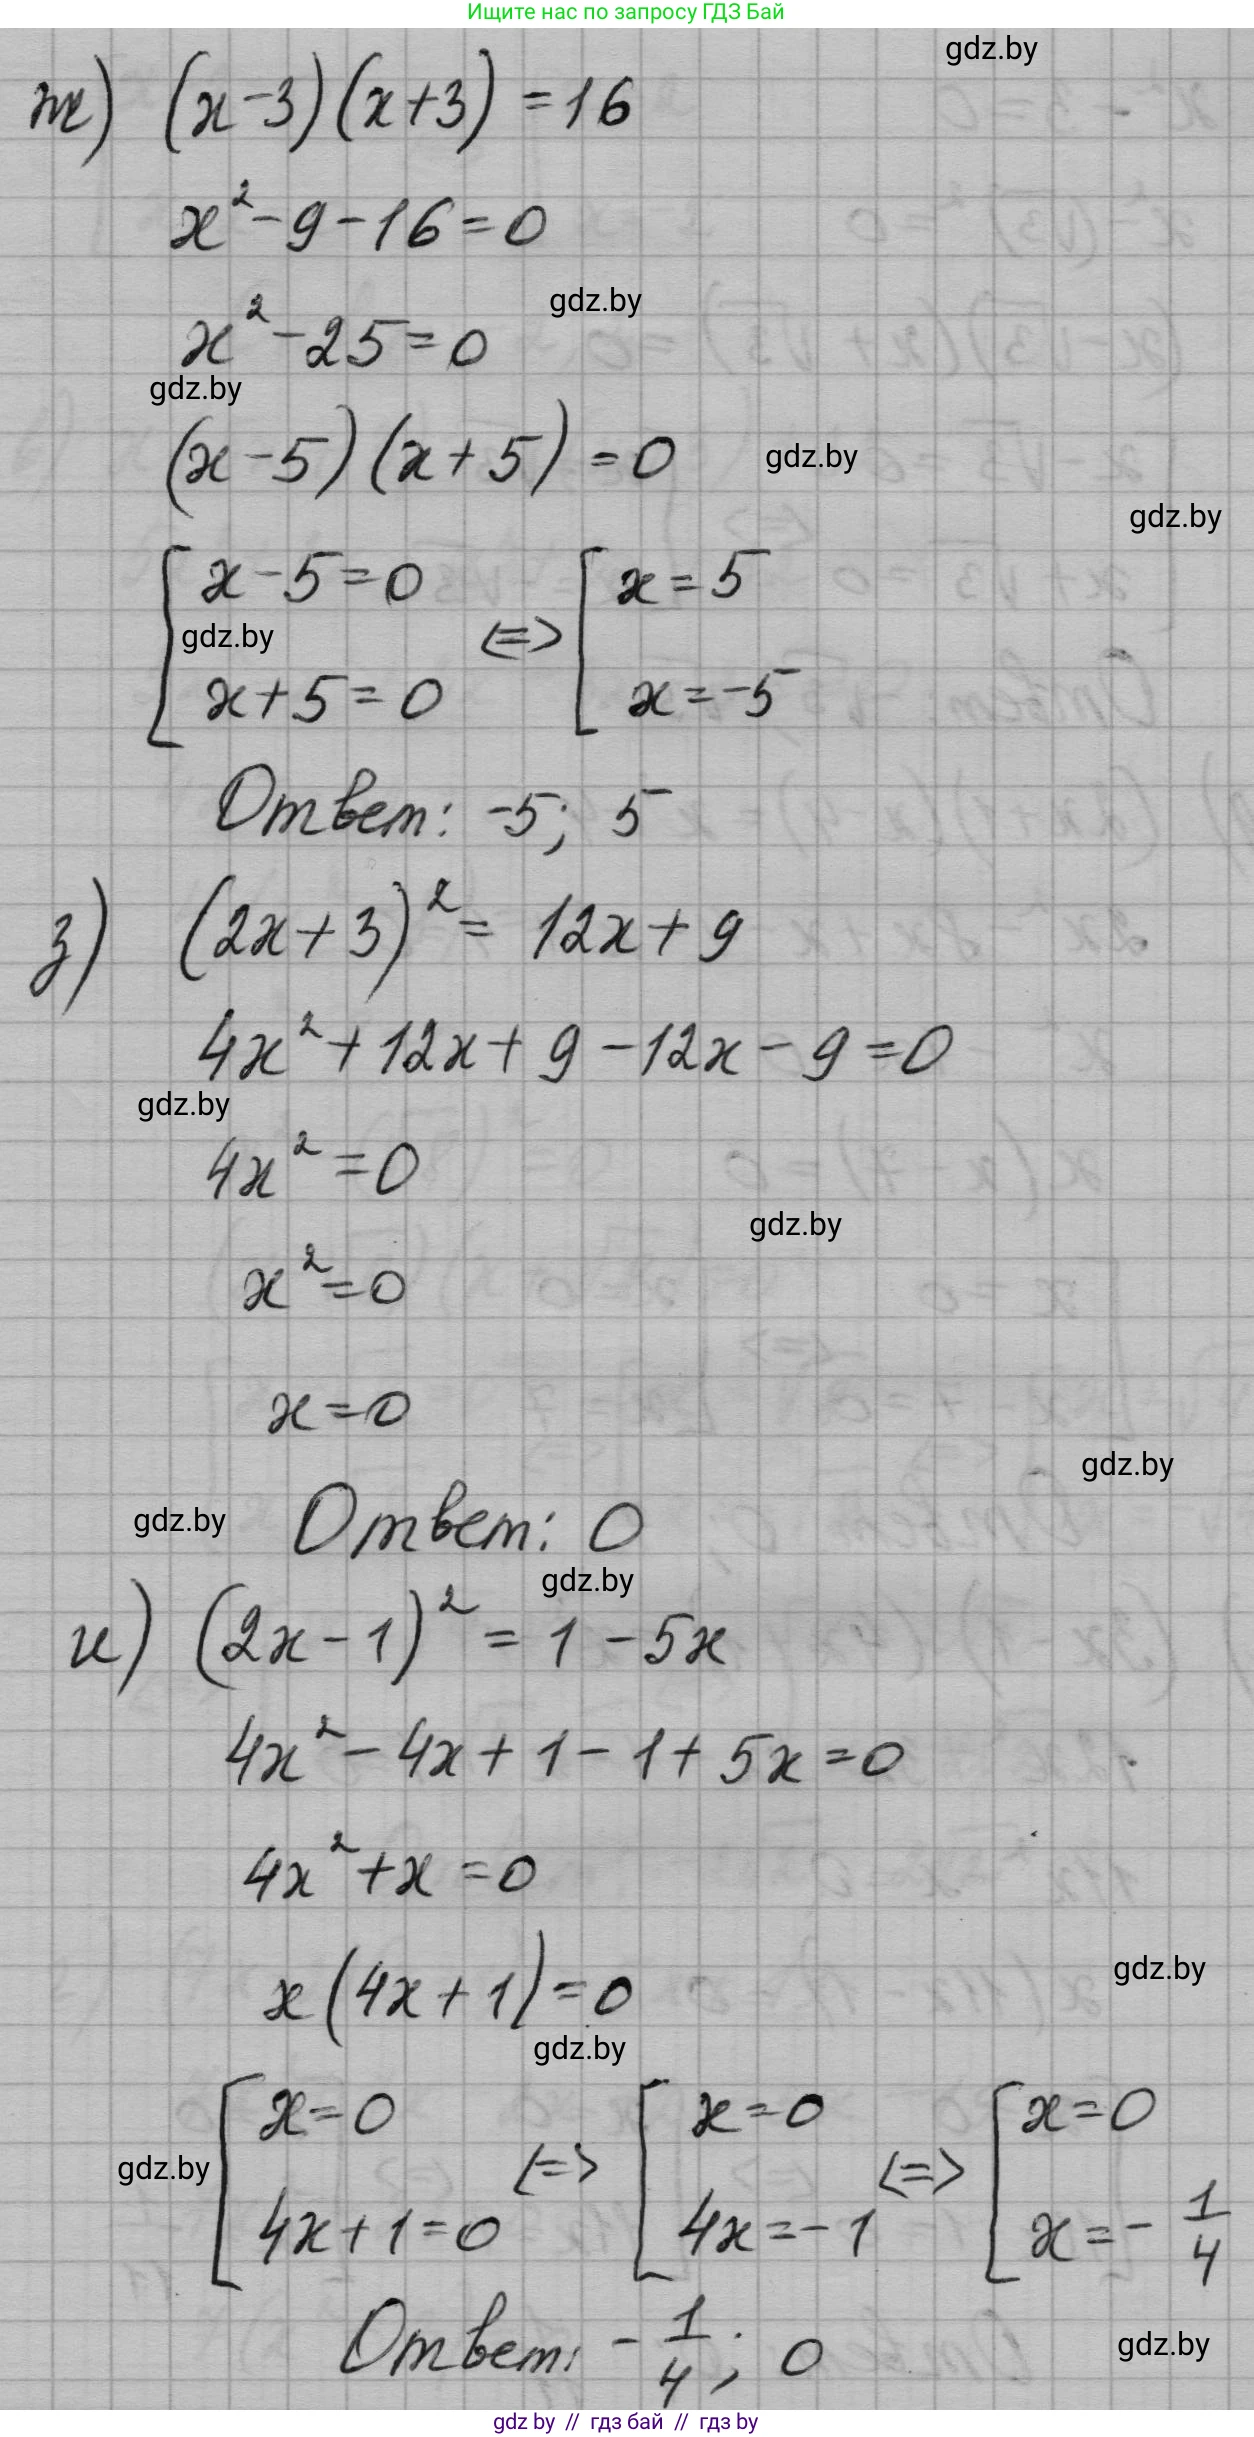 Ищите нас по запросу ГДЗ Бай
gdz.by
ж) (x-3)(x+3) = 16
x² - 9 - 16 = 0
gdz.by
x² - 25 = 0
gdz.by
(x-5)(x+5) = 0
gdz.by
gdz.by
[ x - 5 = 0 <=> [ x = 5
gdz.by
x + 5 = 0 x = -5
Ответ: -5; 5
з) (2x+3)² = 12x + 9
4x² + 12x + 9 - 12x - 9 = 0
gdz.by
4x² = 0
gdz.by
x² = 0
x = 0
gdz.by
gdz.by
Ответ: 0
gdz.by
и) (2x-1)² = 1 - 5x
4x² - 4x + 1 - 1 + 5x = 0
4x² + x = 0
gdz.by
x(4x+1) = 0
gdz.by
[ x = 0 <=> [ x = 0 <=> [ x = 0
gdz.by
4x + 1 = 0 4x = -1 x = - 1/4
Ответ: - 1/4; 0
gdz.by
gdz by // гдз бай // гдз by